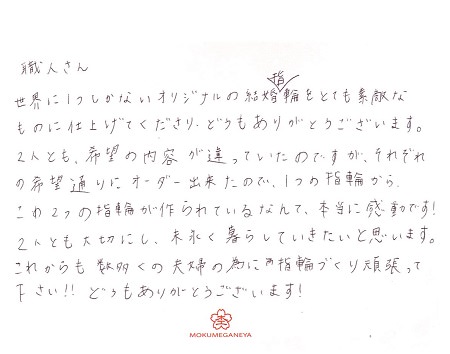 職人さん
世界に1つしかないオリジナルの結婚指輪をとても素敵な
ものに仕上げてくださり、どうもありがとうございます。
2人とも、希望の内容が違っていたのですが、それぞれ
の希望通りにオーダー出来たので、1つの指輪から、
この2つの指輪が作られているなんて、本当に感動です!
2人とも大切にし、末永く暮らしていきたいと思います。
これからも数多くの夫婦の為に指輪づくり頑張って
下さい!! どうもありがとうございます!
MOKUMEGANEYA